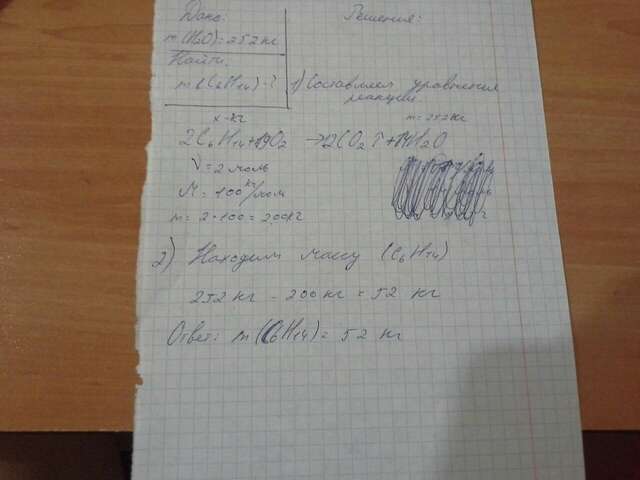 Дано:
Решения:
m(H2O)=252кг
Найти:
m(C6H14)-?
1) Составляем уровнения
реакции.
x-кг
m=252кг
2C6H14+19O2 → 12CO2↑+14H2O
ν=2моль
M=100 кг/мол
m=2·100=200кг
2) Находим массу (C6H14)
252кг-200кг=52 кг
Ответ: m(C6H14)=52 кг